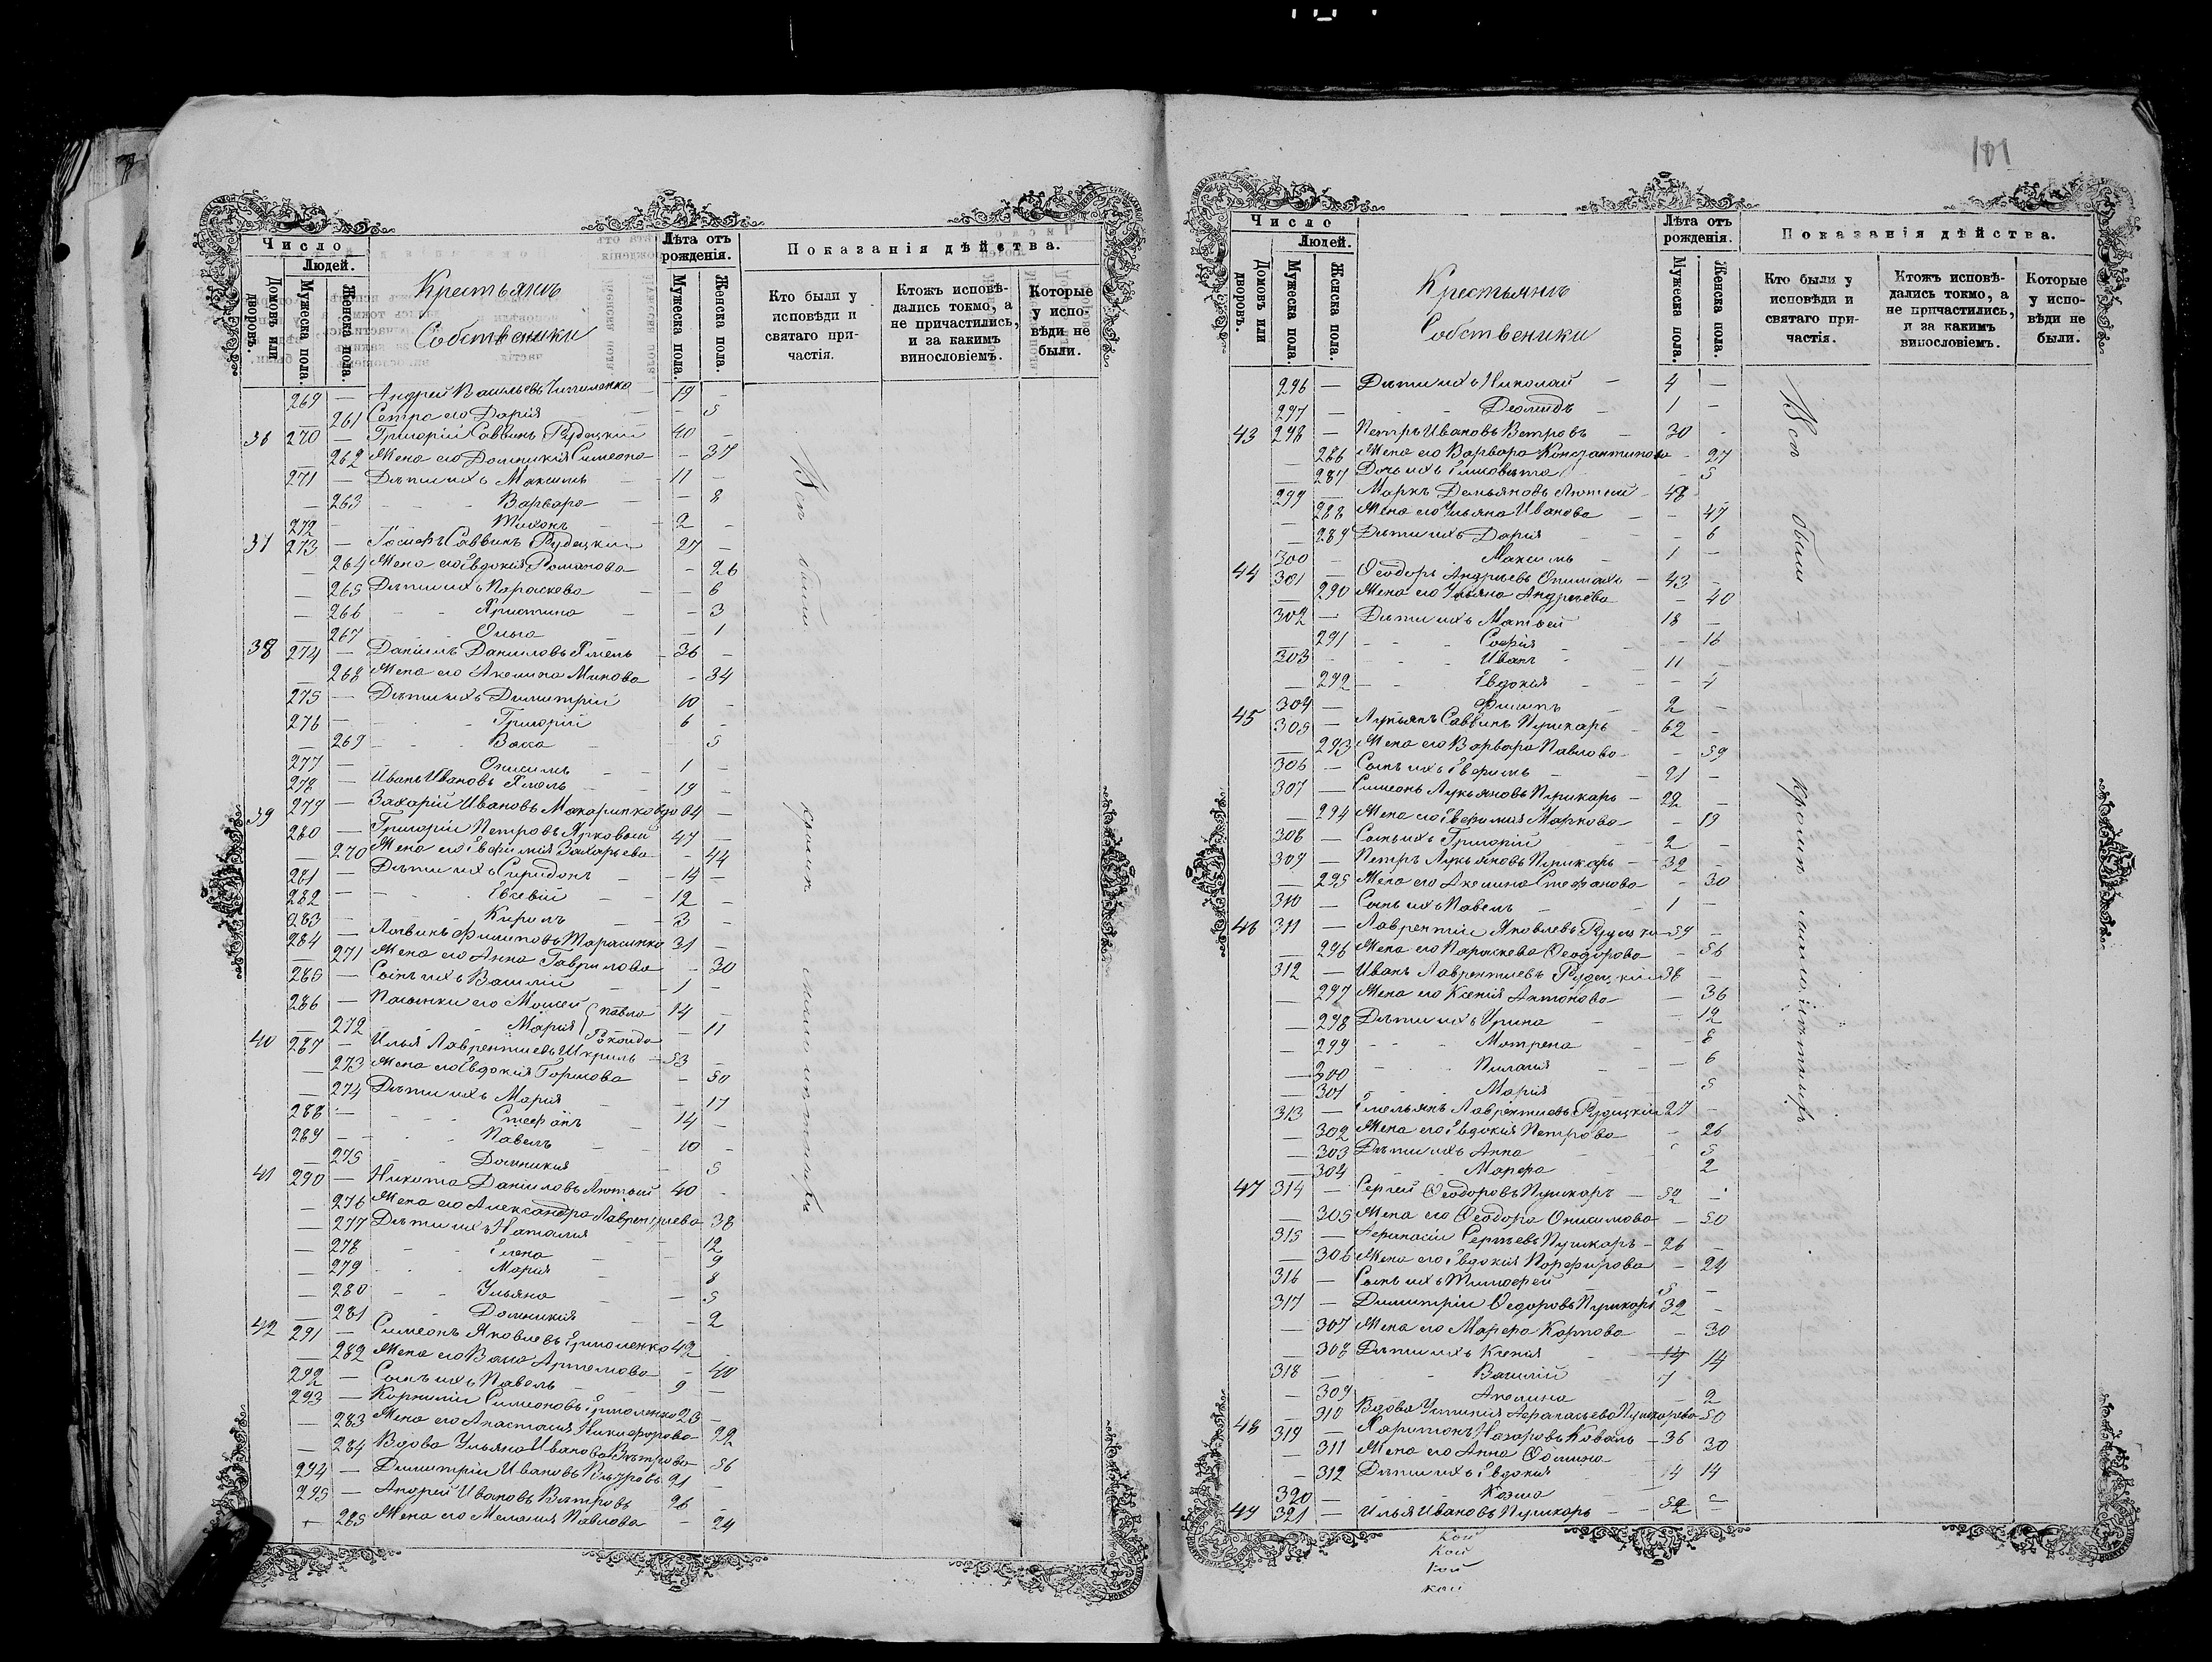 101
Число
Людей.
Домовъ или дворовъ.
Мужеска пола.
Женска пола.
Крестьянъ
Собственики
Лѣта отъ рожденія.
Мужеска пола.
Женска пола.
Показанія дѣйства.
Кто были у исповѣди и святаго причастія.
Ктожъ исповѣдались токмо, а не причастились, и за какимъ винословіемъ.
Которые у исповѣди не были.
269 — Андрей 19 —
261 Сетра его Дарія — 5
36 270 — Григорій Саввинъ Рудецкій 40 —
— 262 Жена его Домникія Симеона — 37
271 — Дѣти ихъ Максимъ 11 —
— 263 Варвара — 8
272 — Тихонъ 2 —
37 273 — Іосифъ Саввинъ Рудецкій 27 —
— 264 Жена его Евдокія Романова — 26
— 265 Дѣти ихъ Параскева — 6
— 266 Христина — 3
— 267 Ольга — 1
38 274 — Даніилъ Даниловъ Хмель 36 —
— 268 Жена его Акелина Минова — 34
275 — Дѣти ихъ Димитрій 10 —
276 — Григорій 6 —
— 269 Васса — 5
277 — Онисимъ 1 —
278 — Иванъ Ивановъ Хмель 19 —
39 279 — Захарій Ивановъ 64 —
280 — Григорій Петровъ Ярковый 47 —
— 270 Жена его Евфимія Захарьева — 44
281 — Дѣти ихъ Спиридонъ 14 —
282 — Евсевій 12 —
283 — Кирилъ 3 —
284 — Логвинъ Филиповъ Тарасинко 31 —
— 271 Жена его Анна Гаврилова — 30
285 — Сынъ ихъ Василій 1 —
286 — Пасынки его Моисей Павла 14 —
— 272 Марія — 11
40 287 — Илья Лаврентиевъ Шкриль 53 —
— 273 Жена его Евдокія — 50
— 274 Дѣти ихъ Марія — 17
288 — Стефанъ 14 —
289 — Павелъ 10 —
— 275 Домникія — 5
41 290 — Никита Даниловъ Лютый 40 —
— 276 Жена его Александра Лаврентиева — 38
— 277 Дѣти ихъ Наталія — 12
— 278 Елена — 9
— 279 Марія — 8
— 280 Ульяна — 5
— 281 Домникія — 2
42 291 — Симеонъ Яковлевъ Ермоленко 42 —
— 282 Жена его Васса Артемова — 40
292 — Сынъ ихъ Павелъ 9 —
293 — Корнилій Симеоновъ Ермоленко 23 —
— 283 Жена его Анастасія Никифорова — 22
— 284 Вдова Ульяна Иванова Вѣтрова — 56
294 — Димитрій Ивановъ 21 —
295 — Андрей Ивановъ Вѣтровъ 26 —
— 285 Жена его Меланія Павлова — 24
Всѣ были кромѣ малолѣтнихъ
Число
Людей.
Домовъ или дворовъ.
Мужеска пола.
Женска пола.
Крестьянъ
Собственики
Лѣта отъ рожденія.
Мужеска пола.
Женска пола.
Показанія дѣйства.
Кто были у исповѣди и святаго причастія.
Ктожъ исповѣдались токмо, а не причастились, и за какимъ винословіемъ.
Которые у исповѣди не были.
296 — Дѣти ихъ Николай 4 —
297 — Деомидъ 1 —
43 298 — Петръ Ивановъ Ветровъ 30 —
— 286 Жена его Варвара Константинова — 27
— 287 Дочь ихъ Елисавета — 5
299 — Маркъ Демьяновъ Лютый 48 —
— 288 Жена его Ульяна Иванова — 47
— 289 Дѣти ихъ Дарія — 6
300 — Максимъ 1 —
44 301 — Ѳеодоръ Андреевъ Онимахъ 43 —
— 290 Жена его Ульяна Андреева — 40
302 — Дѣти ихъ Матвей 18 —
— 291 Софія — 16
303 — Иванъ 11 —
— 292 Евдокія — 4
304 — Филипъ 2 —
45 305 — Лукьянъ Саввинъ Пушкарь 62 —
— 293 Жена его Варвара Павлова — 59
306 — Сынъ ихъ Евфимъ 21 —
307 — Симеонъ Лукьяновъ Пушкарь 22 —
— 294 Жена его Евфимія Маркова — 19
308 — Сынъ ихъ Григорій 2 —
309 — Петръ Лукьяновъ Пушкарь 32 —
— 295 Жена его Акелина Стефанова — 30
310 — Сынъ ихъ Павелъ 1 —
46 311 — Лаврентій Яковлевъ 59 —
— 296 Жена его Параскева Ѳеодорова — 56
312 — Иванъ Лаврентиевъ Рудецкій 38 —
— 297 Жена его Ксенія Антонова — 36
— 298 Дѣти ихъ Ирина — 12
— 299 Матрена — 8
— 300 Пилагія — 6
— 301 Марія — 5
313 — Емельянъ Лаврентиевъ Рудицкій 27 —
— 302 Жена его Евдокія Петрова — 26
— 303 Дѣти ихъ Анна — 5
— 304 Марфа — 2
47 314 — Сергей Ѳеодоровъ Пушкарь 52 —
— 305 Жена его Ѳеодора Онисимова — 50
315 — Афанасій Сергѣевъ Пушкарь 26 —
— 306 Жена его Евдокія Порфирова — 24
316 — Сынъ ихъ Тимофей 5 —
317 — Димитрій Ѳедоровъ Пушкарь 32 —
— 307 Жена его Марфа Карпова — 30
— 308 Дѣти ихъ Ксенія 14 14
318 — Василій 7
— 309 Акелина — 2
— 310 Вдова Устинія Афанасьева Пушкарева 50
48 319 — Харитонъ Назаровъ Коваль 36
— 311 Жена его Анна Ѳомина 30
— 312 Дѣти ихъ Евдокія 14 14
320 — Козма
49 321 — Илья Ивановъ Пушкарь 52 —
Всѣ были кромѣ малолѣтнихъ
кой
кой
кой
кой